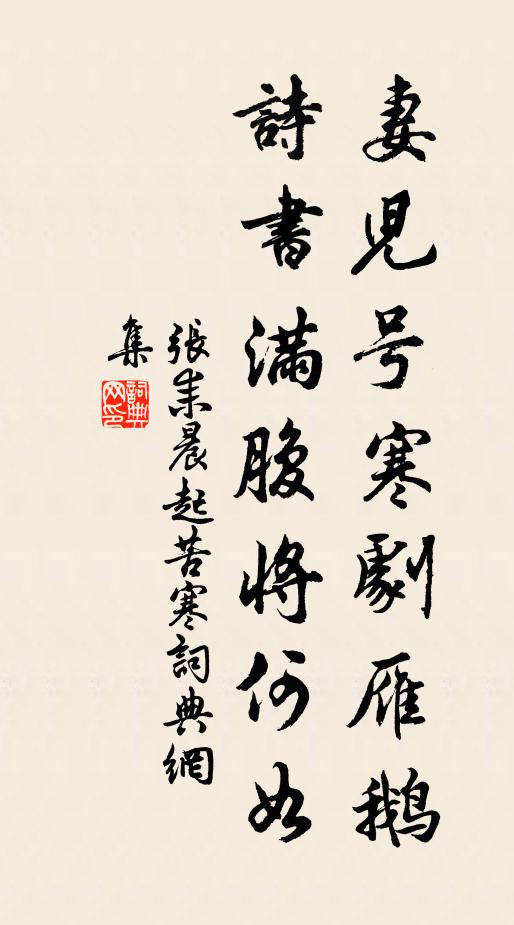 妻児号寒劇雁鵝
詩書滿腹將何如
張耒晨起苦寒詞典網
集
詞典网印